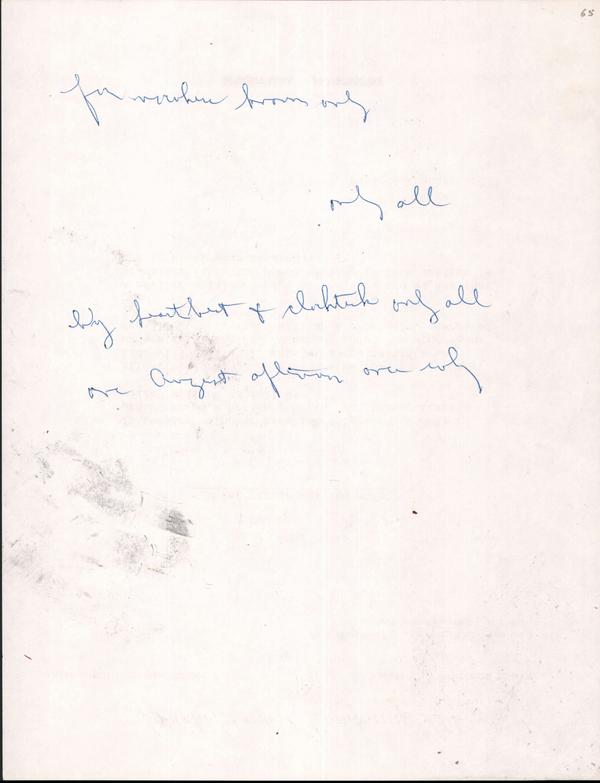 65
for
only
only all
by heartbeat & clocktick only all
one August afternoon once only